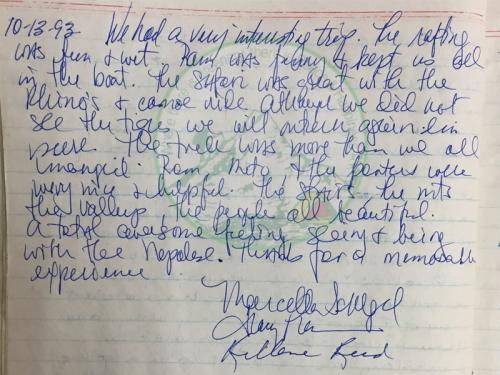 10-13-93 We had a very interesting trip. The rafting
was fun & wet. Ram was funny & kept us all
in the boat. The safari was great with the
Rhino's & canoe ride although we did not
see the tiger we will return again in
The trek was more than we all
Ram & the porters were
very nice & helpful. The the mts
the valleys the people all beautiful.
A total awesome feeling seeing & being
with the Nepalese. Thanks for a memorable
experience
Marcella